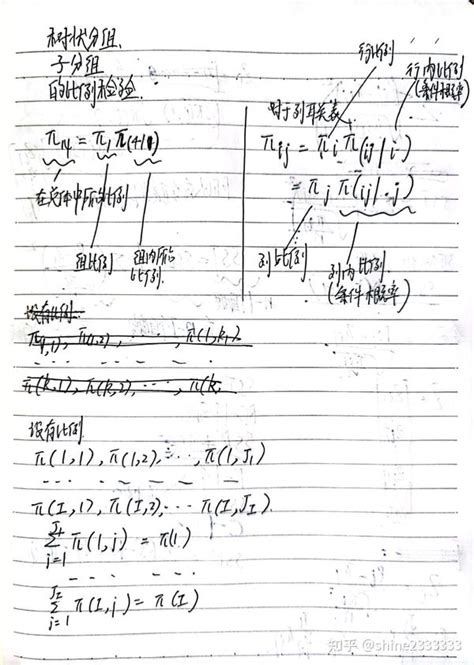 树状分组、
子分组
的比例检验
π₁₄ = π₁ π(4|1)
在总体中所占比例
组比例
组内所占比例
行比例
行内比例
(条件概率)
对于列联表
πᵢⱼ = πᵢ π(ij|i·)
= πⱼ π(ij|·j)
列比例
列内比例
(条件概率)
设有比例
π(1,1), π(1,2), ⋯, π(1,k₁)
π(k,1), π(k,2), ⋯, π(k,
设有比例
π(1,1), π(1,2), ⋯, π(1,J₁)
π(I,1), π(I,2), ⋯ π(I,J_I).
∑_{j=1}^{J₁} π(1,j) = π(1)
∑_{j=1}^{J_I} π(I,j) = π(I)
知乎 @shine2333333